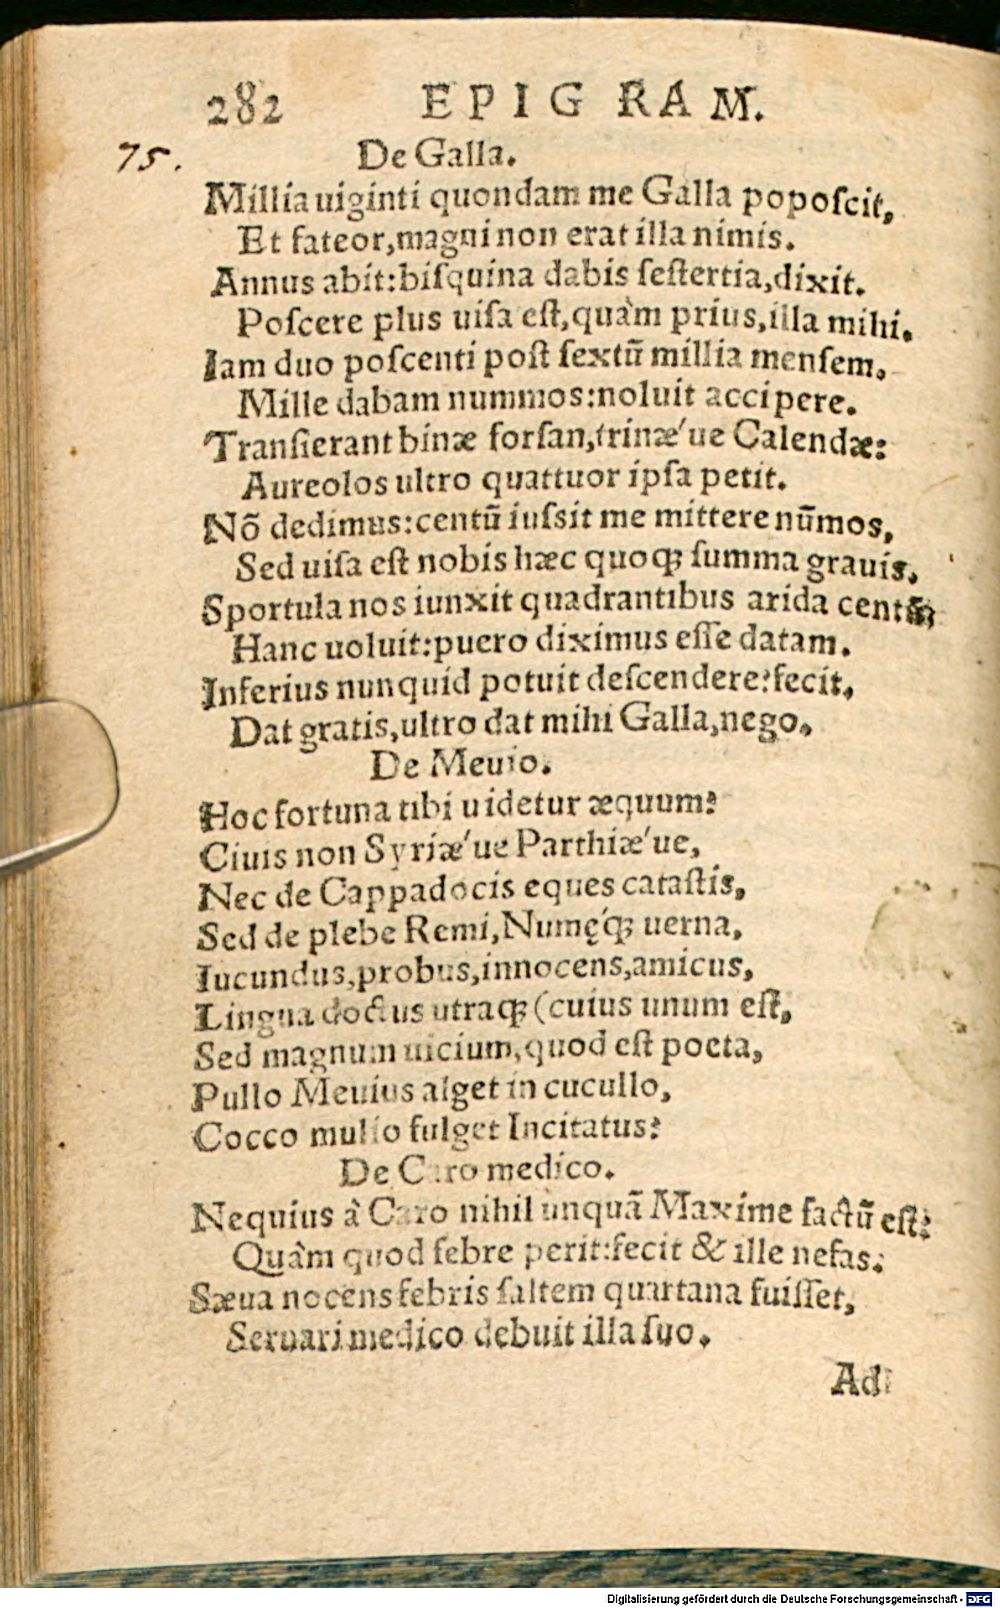 282 EPIGRAM.
75.
De Galla.
Millia uiginti quondam me Galla popoſcit,
Et fateor,magni non erat illa nimis.
Annus abit:biſquina dabis ſeſtertia,dixit.
Poſcere plus uiſa eſt,quàm prius,illa mihi.
Iam duo poſcenti poſt ſextũ millia menſem,
Mille dabam nummos:noluit accipere.
Tranſierant binæ forſan,trinæ´ue Calendæ:
Aureolos ultro quattuor ipſa petit.
Nõ dedimus:centũ iuſsit me mittere nũmos,
Sed uiſa eſt nobis hæc quoq; ſumma grauis.
Sportula nos iunxit quadrantibus arida centũ
Hanc uoluit:puero diximus eſſe datam.
Inferius nunquid potuit deſcendere?fecit,
Dat gratis,ultro dat mihi Galla,nego.
De Meuio.
Hoc fortuna tibi uidetur æquum?
Ciuis non Syriæ´ue Parthiæ´ue,
Nec de Cappadocis eques cataſtis,
Sed de plebe Remi,Numęq́; uerna,
Iucundus,probus,innocens,amicus,
Lingua doctus utraq; (cuius unum eſt,
Sed magnum uicium,quod eſt poeta,
Pullo Meuius alget in cucullo,
Cocco mulio fulget Incitatus?
De Caro medico.
Nequius à Caro nihil unquã Maxime factũ eſt?
Quàm quod febre perit:fecit & ille nefas:
Sæua nocens febris ſaltem quartana fuiſſet,
Seruari medico debuit illa ſuo.
Ad
Digitalisierung gefördert durch die Deutsche Forschungsgemeinschaft - DFG